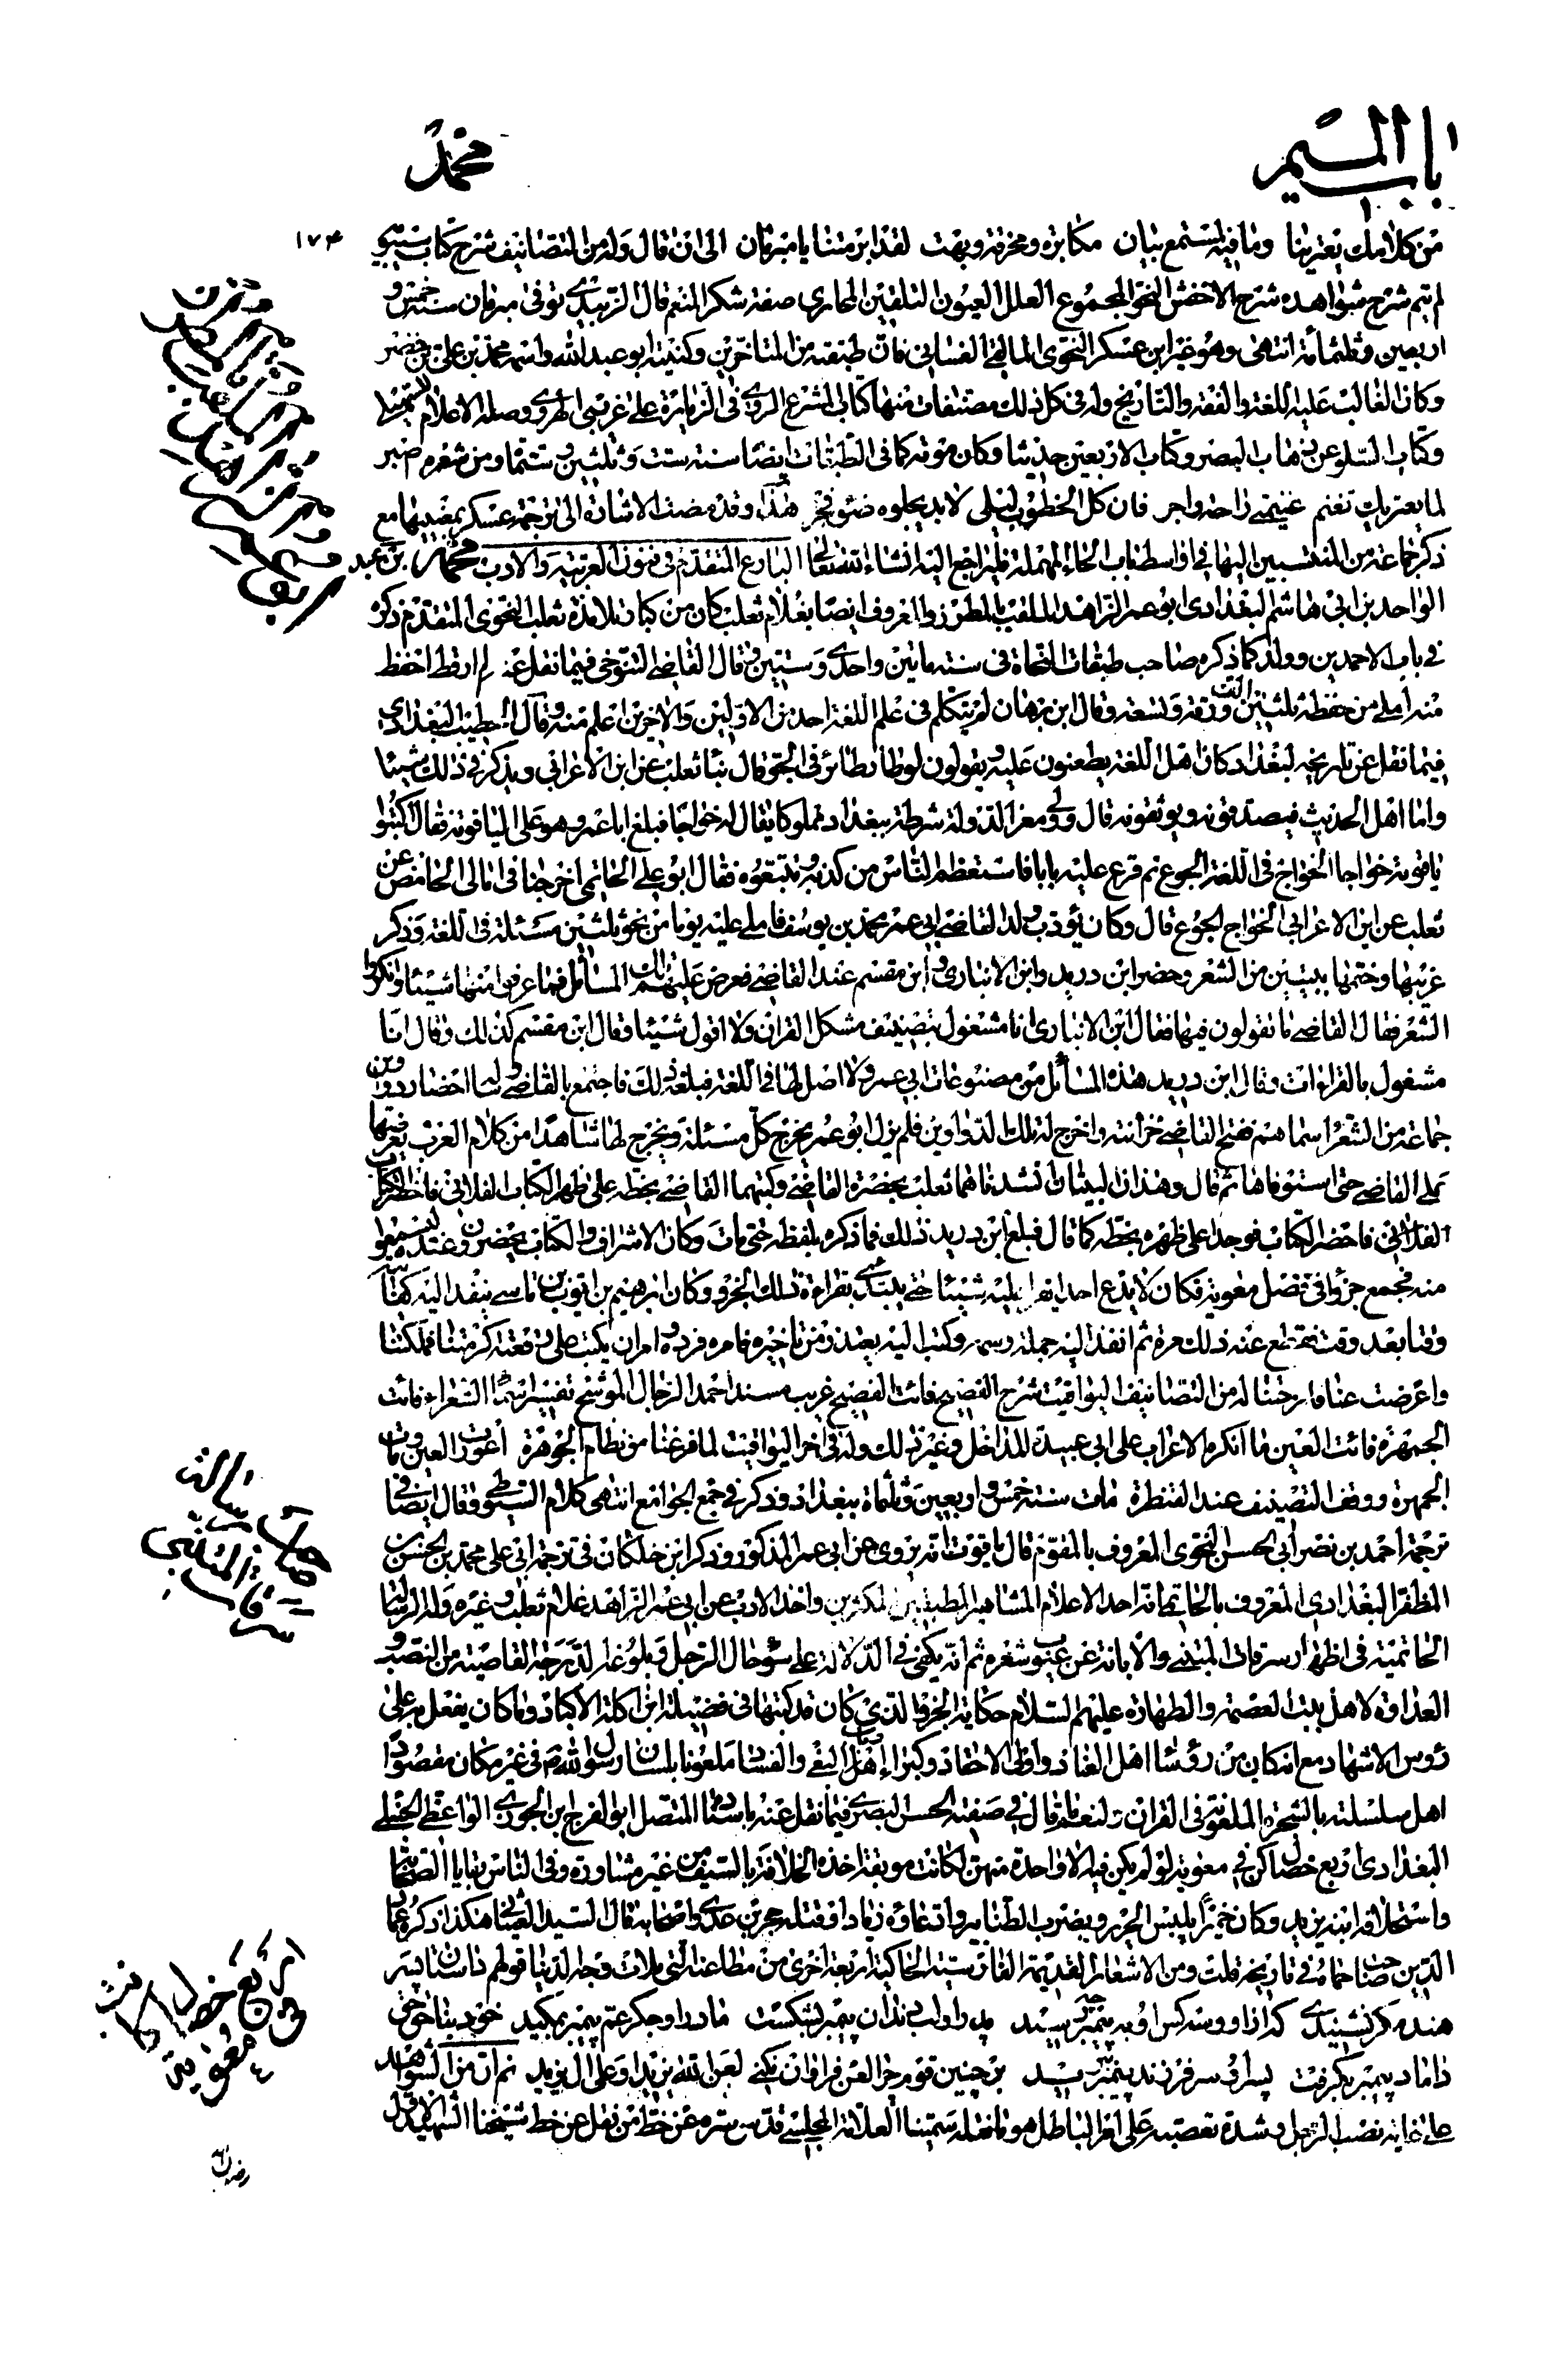 باب الميم
محمد
١٧٤
من كلامك يعترينا وما فيه لمستمع بيان مكابرة ومخرقة وبهت لقد ابرمتنا يا مبرمان الى ان قال وله من التصانيف شرح كتاب سيبويه
لم يتم شرح شواهده شرح الاخفش النحو المجموع العلل العيون التلقين المجارى صفة شكر المنعم قال الزبيدى توفى مبرمان سنة خمس و
اربعين وثلثمأة انتهى وهو غير ابن عسكر النحوى المالقى الغسانى فان طبقته من المتأخرين وكنيته ابو عبد الله واسمه محمد بن على بن خضر
وكان الغالب عليه اللغة والفقه والتاريخ وله فى كل ذلك مصنفات منها كتاب المشرع الروى فى الزيادة على غريبى الهروى وصلة الاعلام للسهيلى
وكتاب السلو عن ذهاب البصر وكتاب الاربعين حديثا وكان موته كما فى الطبقات ايضا سنة ست وثلثين وستمأ ومن شعره اصبر
لما يعتريك تغنم غنيمتى راحة واجر فان كل الخطوب ليل لابد يجلوه ضوء فجر هذا وقد مضت الاشارة الى ترجمة عسكر بمعنييها مع
ذكر جماعة من المنتسبين اليها فى اواسط باب الحاء المهملة فليراجع اليه انشاء الله تعالى البارع المتقدم فى فنون العربية والادب محمد بن عبد
الواحد بن ابى هاشم البغدادى ابو عمر الزاهد الملقب بالمطرز والمعروف ايضا بغلام ثعلب كان من كبار تلامذة ثعلب النحوى المتقدم ذكره
فى باب الاحمدين وولد كما ذكره صاحب طبقات النحاة فى سنة ماتين واحدى وستين وقال القاضى التنوخى فيما نقل عنه لم ار قط احفظ
منه املى من حفظه ثلثين الف ورقة ولسعة وقال ابن برهان لم يتكلم فى علم اللغة احد من الاولين والاخرين اعلم منه وقال الخطيب البغدادى
فيما نقل عن تاريخه لبغداد كان اهل اللغة يطعنون عليه ويقولون لو طار طائر فى الجو قال ثنا ثعلب عن ابن الاعرابى ويذكر فى ذلك شيئا
واما اهل الحديث فيصدقونه ويوثقونه قال ولى معز الدولة شرطة ببغداد مملوكا يقال له خواجا فبلغ ابا عمر وهو على الياقوتة فقال اكتبوا
ياقوتة خواجا الخواج فى اللغة الجوع ثم فرع عليه بابا فاستعظم الناس من كذبه وتتبعوه فقال ابو على الحاتمى اخرجنا فى امالى الحامض عن
ثعلب عن ابن الاعرابى الخواج الجوع قال وكان يؤدب ولد القاضى ابى عمر محمد بن يوسف فاملى عليه يوما من نحو ثلثين مسئلة فى اللغة وذكر
غريبها وختمها ببيتين من الشعر وحضر ابن دريد وابن الانبارى وابن مقسم عند القاضى فعرض عليهم تلك المسائل فما عرفوا منها شيئا وانكروا
الشعر فقال القاضى ما تقولون فيها فقال ابن الانبارى انا مشغول بتصنيف مشكل القران ولا اقول شيئا وقال ابن مقسم كذلك وقال انا
مشغول بالقراءات وقال ابن دريد هذه المسائل من مصنوعات ابى عمر ولا اصل لها فى اللغة فبلغه ذلك فاجتمع بالقاضى وساله احضار دواوين
جماعة من الشعراء سماهم ففتح القاضى خزانته واخرج له تلك الدواوين فلم يزل ابو عمر يخرج كل مسئلة ويخرج لها شاهدا من كلام العرب يعرفها
على القاضى حتى استوفاها ثم قال وهذان البيتان انشدناهما ثعلب بحضرة القاضى وكتبهما القاضى بخطه على ظهر الكتاب الفلانى فاحضر الكتاب
الفلانى فاحضر الكتاب فوجدا على ظهره بخطه كما قال فبلغ ابن دريد ذلك فما ذكره بلفظة حتى مات وكان الاشراف والكتاب يحضرون عنده ليسمعوا
منه فجمع جزوا فى فضل معوية فكان لا يدع احدا يقرا عليه شيئا حتى يبتدى بقراءة ذلك الجزو وكان ابرهيم بن ايوب بن ماسى ينفد اليه كفايته
وقتا بعد وقت فقطع عنه ذلك مرة ثم انفذ اليه جملة رسمه وكتب اليه يعتذر من تاخيره فامره فرده وامر ان يكتب على رقعته اكرمتنا فملكتنا
واعرضت عنا فارحتنا له من التصانيف اليواقيت شرح الفصيح فائت الفصيح غريب مسند احمد الرحال الموشح تفسير اسماء الشعراء فائت
الجمهرة فائت العين ما انكره الاعراب على ابى عبيدة المداخل وغير ذلك وله فى اخر اليواقيت لما فرغنا من نظام الجوهرة اعورت العين ومات
الجمهرة ووقف التصنيف عند القنطرة مات سنة خمس واربعين وثلثماة ببغداد وذكر فى جمع الجوامع انتهى كلام السيوطى وقال ايضا فى
ترجمة احمد بن نصر ابى الحسن النحوى المعروف بالمقوم قال ياقوت انه يروى عن ابى عمر المذكور وذكر ابن خلكان فى ترجمة ابى على محمد بن الحسن بن
المظفر البغدادى المعروف بالحاتمى انه احد الاعلام المشاهير المطلعين المكثرين واخذ الادب عن ابى عمر الزاهد غلام ثعلب وغيره وله الرسالة
الحاتمية فى اظهار سرقات المتنبى والابانة عن عيوب شعره ثم انه يكفى فى الدلالة على سوء حال الرجل وبلوغه الدرجة القاصية من النصب و
العداوة لاهل بيت العصمة والطهارة عليهم السلام حكاية الجزو الذى كان قد كتبها فى فضيلة ابن اكلة الاكباد وما كان يفعل به على
رؤس الاشهاد مع انه كان من رؤساء اهل العناد واولى الاحقاد وكبراء اهل البغى والفساد ملعونا بلسان رسول الله ص فى غير مكان مقصودا
اهل سلسلته بالشجرة الملعونة فى القران ولنعم ما قال فى صفته الحسن البصرى فيما نقل عنه باسناد المتصل ابو الفرج بن الجوزى الواعظ الحنبلى
البغدادى اربع خصال كن فى معوية لو لم يكن فيه الا واحدة منهن لكانت موبقة اخذه الخلافة بالسيف من غير مشاورة وفى الناس بقايا الصحابة
واستخلافه ابنه يزيد وكان خميرا يلبس الحرير ويضرب الطنابير وادعاؤه زيادا وقتله حجر بن عدى واصحابه قال السيد العينى هكذا ذكره عماد
الدين صاحب حماة فى تاريخه قلت ومن الاشعار القديمة الفارسية الحاكية اربعة اخرى من مطاعنه التى ملات وجه الدنيا قولهم داستان پسر
هند مگر نشنيدى كه از او وسه كس او به پيمبر چه رسيد پدر او لب و دندان پيمبر بشكست مادر او جگر عم پيمبر بمكيد خود بناحق حق
داماد پيمبر بگرفت پسر او سر فرزند پيمبر ببريد بر چنين قوم چرا لعن فراوان نكنى لعن الله يزيدا وعلى ال يزيد ثم ان من الشواهد
على غاية نصب الرجل وشدة تعصبه على امر الباطل هو ما نقله سمينا العلامة المجلسى قدس سره عن خط من نقل عن خط شيخنا الشهيد الاول
حكاية رسالة
اربع خصال كانت
فى معوية
رضى الله